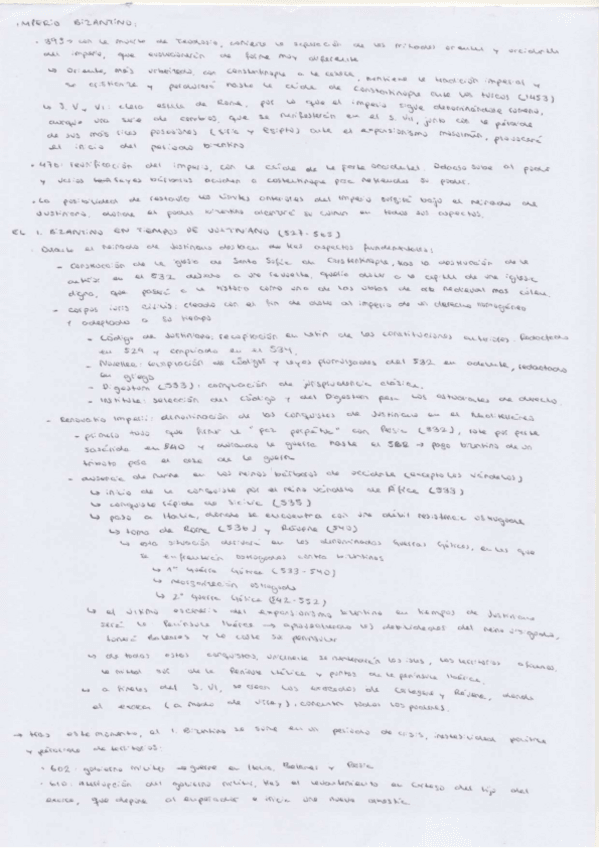 IMPERIO BIZANTINO:
· 395 → con la muerte de Teodosio, comienza la separación de las mitades oriental y occidental
del imperio, que evolucionarán de forma muy diferente
↳ Oriente, más urbanizado, con Constantinopla a la cabeza, mantiene la tradición imperial y
se cristianiza y perdurará hasta la caída de Constantinopla ante los turcos (1453)
↳ S. V - VI: clara estela de Roma, por lo que el imperio sigue denominándose romano,
aunque una serie de cambios, que se manifestarán en el S. VII, junto con la pérdida
de sus más ricas posesiones (Siria y Egipto) ante el expansionismo musulmán, provocará
el inicio del período bizantino
· 476: reunificación del imperio, con la caída de la parte occidental. Odoacro sube al poder
y varios reyes bárbaros acuden a Constantinopla para su poder.
· La posibilidad de restaurar los límites anteriores del imperio surgirá bajo el reinado de
Justiniano, donde el poder bizantino alcanzará su cumbre en todos sus aspectos.
EL I. BIZANTINO EN TIEMPOS DE JUSTINIANO (527-565)
· Durante el reinado de Justiniano destacan tres aspectos fundamentales:
- Construcción de la iglesia de Santa Sofía en Constantinopla, tras la destrucción de la
anterior en el 532 debido a una revuelta, quería dotar a la capital de una iglesia
digna, que pasará a la historia como una de las obras de arte medieval más
- Corpus iuris civilis: creado con el fin de dotar al imperio de un derecho homogéneo
y adaptado a su tiempo
- Código de Justiniano: recopilación en latín de las constituciones Redactado
en 529 y ampliado en el 534.
- Novellae: recopilación de códigos y leyes promulgadas del 532 en adelante, redactado
en griego
- Digestum (533): compilación de jurisprudencia clásica.
- Institutas: selección del Código y del Digestum para los estudiantes de derecho.
- Renovatio Imperii: denominación de las conquistas de Justiniano en el Mediterráneo
- primero tuvo que firmar la "paz perpetua" con Persia (532), rota por parte
sasánida en 540 y durando la guerra hasta el 562 → pago bizantino de un
tributo para el cese de la guerra
- ausencia de en los reinos bárbaros de occidente (excepto los vándalos)
↳ inicio de la conquista por el reino vándalo de África (533)
↳ conquista rápida de Sicilia (535)
↳ paso a Italia, donde se encuentra con una débil resistencia ostrogoda
↳ toma de Roma (536) y Rávena (540)
↳ esta situación derivará en las denominadas Guerras Góticas, en las que
se enfrentarán ostrogodos contra bizantinos
↳ 1ª Guerra Gótica (533-540)
↳ reorganización ostrogoda
↳ 2ª Guerra Gótica (542-552)
↳ el último escenario del expansionismo bizantino en tiempos de Justiniano
será la Península Ibérica → aprovechando las debilidades del reino visigodo,
tomará Baleares y la costa su peninsular
↳ de todas estas conquistas, únicamente se mantendrán las islas, los territorios africanos,
la mitad sur de la Península Itálica y puntos de la península Ibérica.
↳ a finales del S. VI, se crean los exarcados de Cartago y Rávena, donde
el exarca (a modo de virrey), concentra todos los poderes.
→ tras este momento, el I. Bizantino se sume en un período de crisis, inestabilidad política
y pérdidas de territorios:
· 602: gobierno militar → guerra en Italia, Balcanes y Persia
· 610: del gobierno militar, tras el levantamiento en Cartago del hijo del
exarca, que depone al emperador e inicia una nueva dinastía